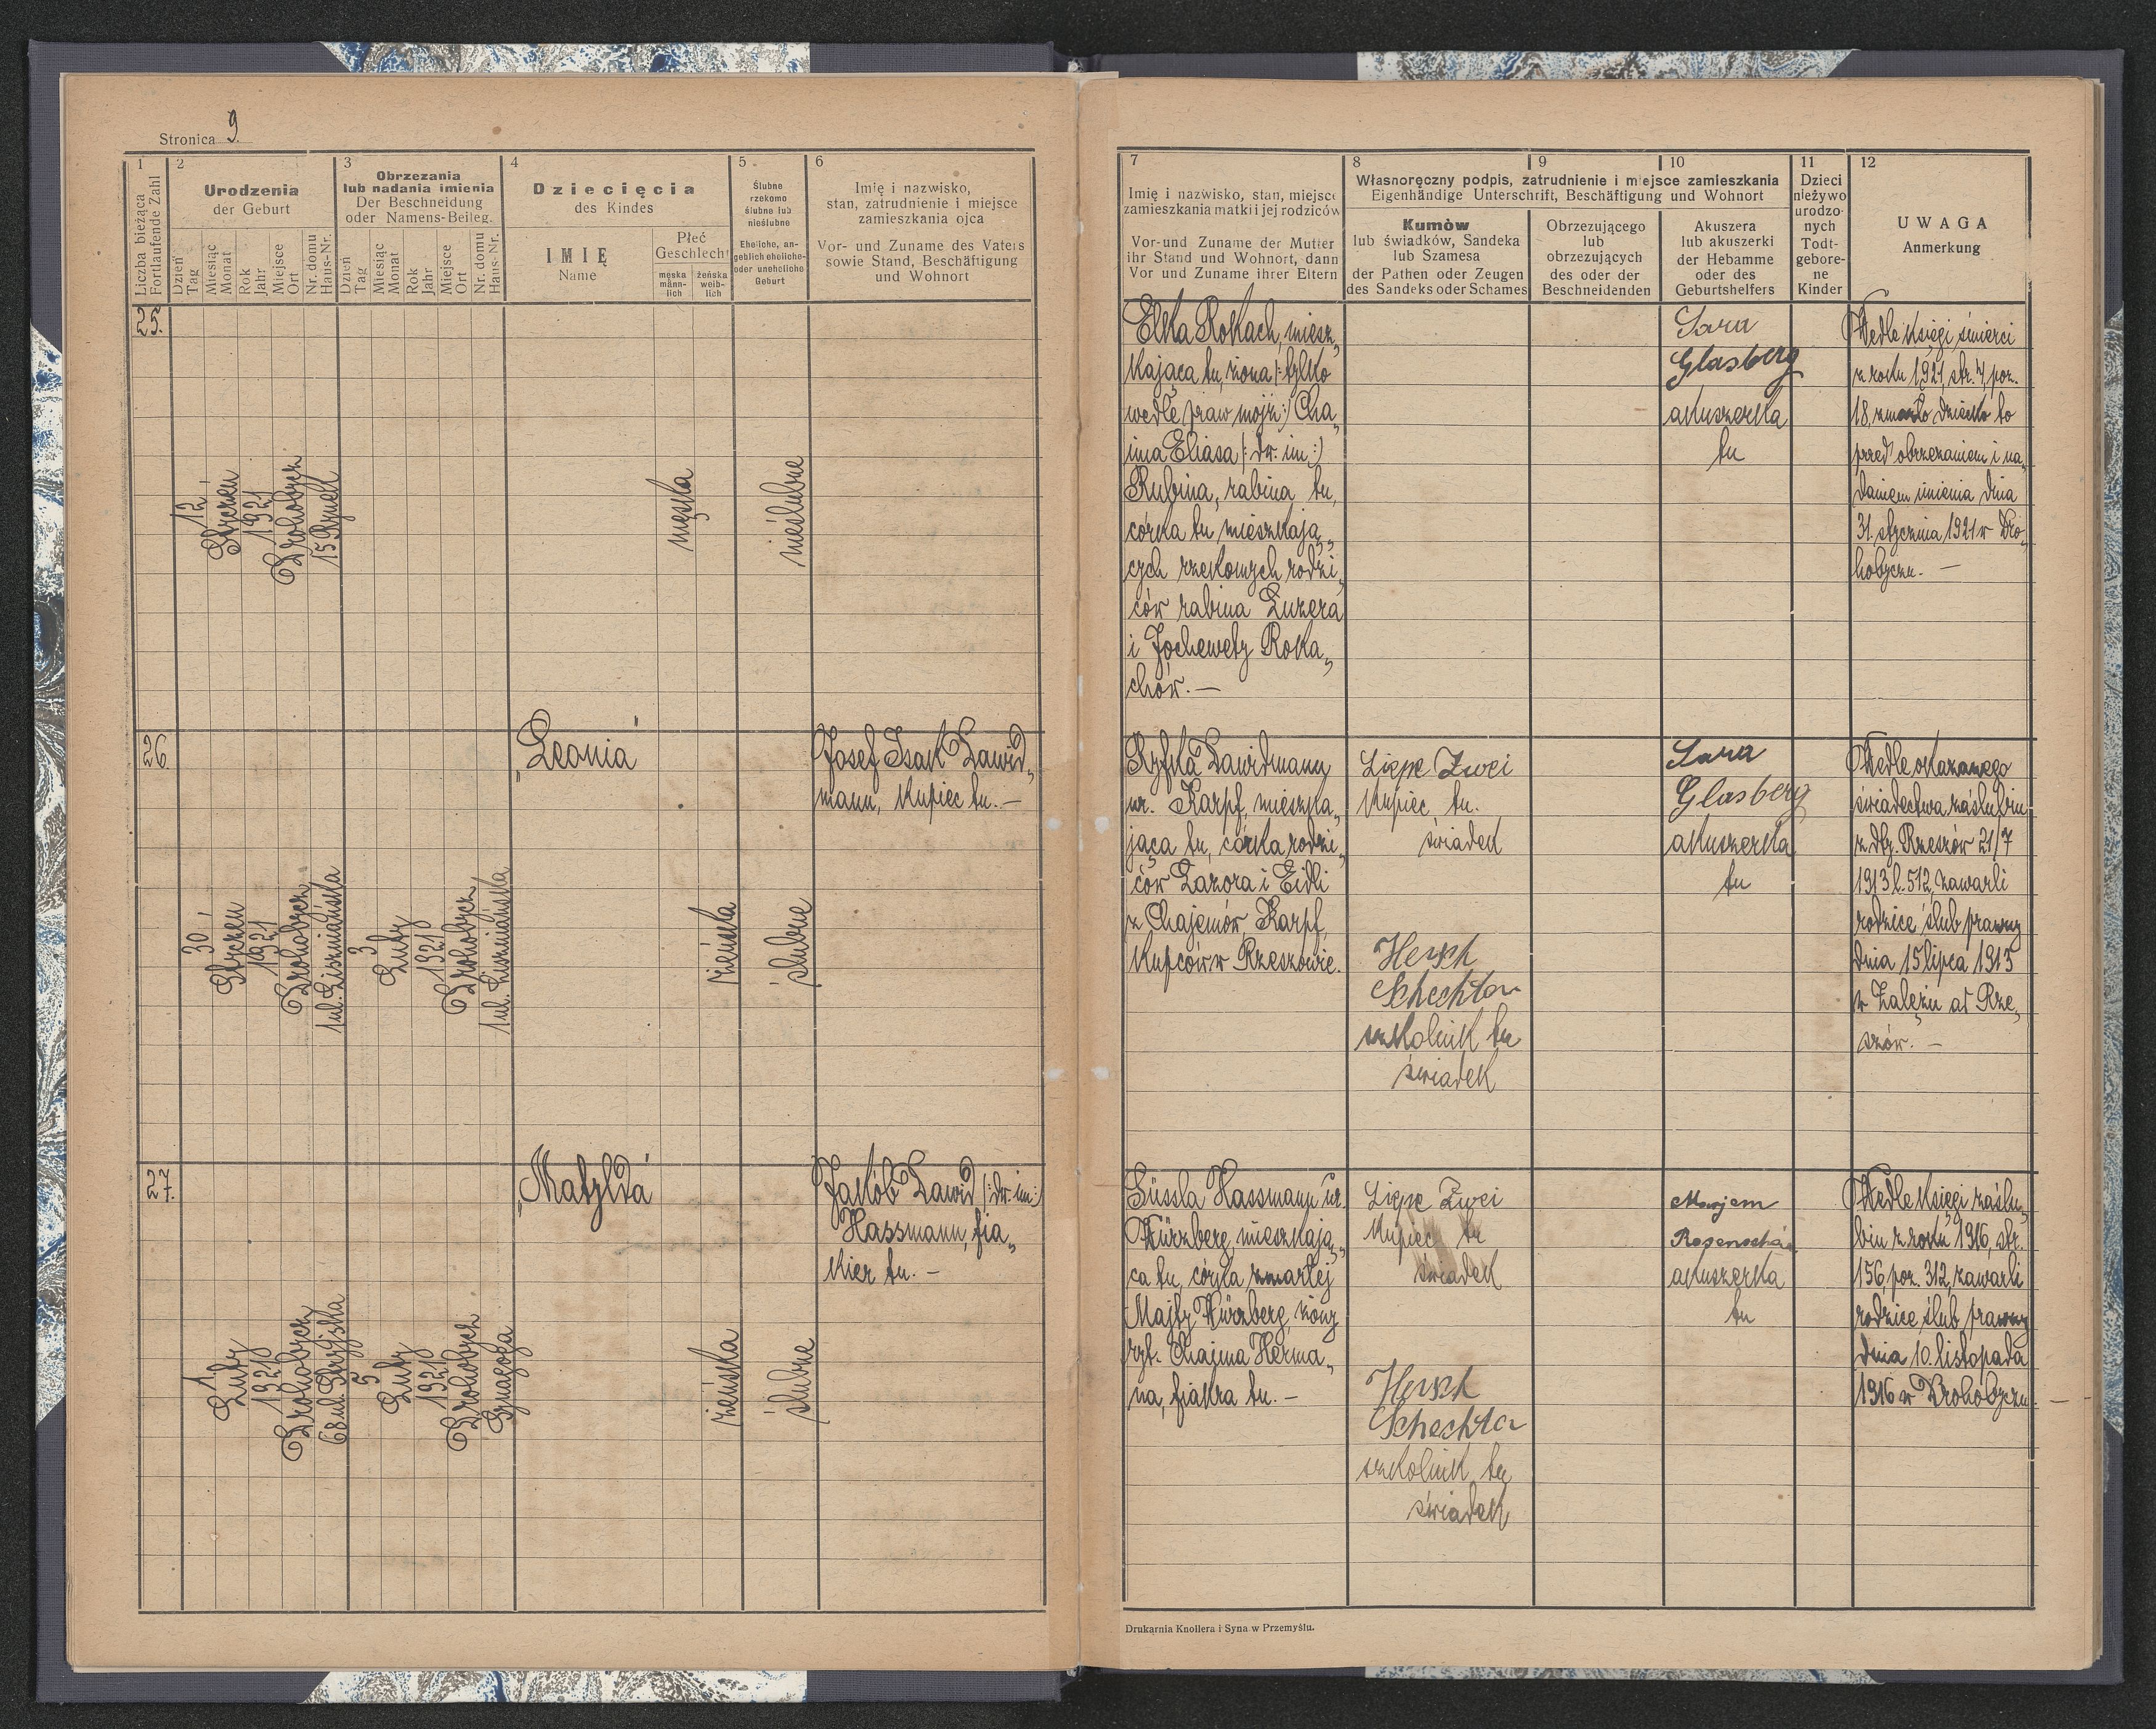 Stronica 9.
1
Liczba bieżąca
Fortlaufende Zahl
2
Urodzenia
der Geburt
Dzień
Tag
Miesiąc
Monat
Rok
Jahr
Miejsce
Ort
Nr. domu
Haus-Nr.
3
Obrzezania
lub nadania imienia
Der Beschneidung
oder Namens-Beileg.
Dzień
Tag
Miesiąc
Monat
Rok
Jahr
Miejsce
Ort
Nr. domu
Haus-Nr.
4
Dziecięcia
des Kindes
IMIĘ
Name
Płeć
Geschlecht
męska
männ-
lich
żeńska
weib-
lich
5
Ślubne
rzekomo
ślubne lub
nieślubne
Eheliche, an-
geblich eheliche-
oder uneheliche
Geburt
6
Imię i nazwisko,
stan, zatrudnienie i miejsce
zamieszkania ojca
Vor- und Zuname des Vaters
sowie Stand, Beschäftigung
und Wohnort
25.
12
Styczeń
1921
Drohobycz
15 Rynek
męska
nieślubne
26.
30
Styczeń
1921
Drohobycz
ul. Liszniańska
3
Luty
1921
Drohobycz
ul. Liszniańska
„Leonia"
żeńska
ślubne
Josef Isak Dawid„
mann, kupiec tu. –
27.
1
Luty
1921
Drohobycz
68 ul. Stryjska
5
Luty
1921
Drohobycz
Synagoga
„Matylda"
żeńska
ślubne
Jakób Dawid (: dw. im:)
Hassmann, fia„
kier tu. –
7
Imię i nazwisko, stan, miejsce
zamieszkania matki i jej rodziców
Vor-und Zuname der Mutter
ihr Stand und Wohnort, dann
Vor und Zuname ihrer Eltern
8
9
10
Własnoręczny podpis, zatrudnienie i miejsce zamieszkania
Eigenhändige Unterschrift, Beschäftigung und Wohnort
Kumów
lub świadków, Sandeka
lub Szamesa
der Pathen oder Zeugen
des Sandeks oder Schames
Obrzezującego
lub
obrzezujących
des oder der
Beschneidenden
Akuszera
lub akuszerki
der Hebamme
oder des
Geburtshelfers
11
Dzieci
nieżywo
urodzo-
nych
Todt-
gebore-
ne
Kinder
12
UWAGA
Anmerkung
Elka Rokach, miesz„
kająca tu, żona (: tylko
wedle praw mojż:) Cha„
ima Eliasa (: dw. im:)
Rubina, rabina tu,
córka tu mieszkają„
cych rzekomych rodzi„
ców rabina Luzera
i Jochewety Roka„
chów. –
Sara
Glasberg
akuszerka
tu
Wedle księgi śmierci
z roku 1921, str. 4, poz.
18, zmarło dziecko to
przed obrzezaniem i na„
daniem imienia dnia
31. stycznia 1921 w Dro„
hobyczu. –
Ryfka Dawidmann
ur. Karpf, mieszka„
jąca tu, córka rodzi„
ców Lazora i Eidli
z Chajemów, Karpf,
kupców w Rzeszowie.
Lippe Zwei
kupiec tu.
świadek
Hersch
Schechter
szkolnik tu
świadek
Sara
Glasberg
akuszerka
tu
Wedle okazanego
świadectwa zaślubin
z dtg. Rzeszów 21/7
1913 l. 512, zawarli
rodzice ślub prawny
dnia 15 lipca 1913
w Załężu ad Rze„
szów. –
Süssla Hassmann ur.
Würzberg, mieszkają„
ca tu, córka zmarłej
Majty Würzberg, żony
ryt. Chajma Herma„
na, fiakra tu. –
Lippe Zwei
kupiec tu
świadek
Hersch
Schechter
szkolnik tu
świadek
Marjem
akuszerka
tu
Wedle księgi zaślu„
bin z roku 1916, str.
156, poz. 312, zawarli
rodzice ślub prawny
dnia 10. listopada
1916 w Drohobyczu. –
Drukarnia Knollera i Syna w Przemyślu.